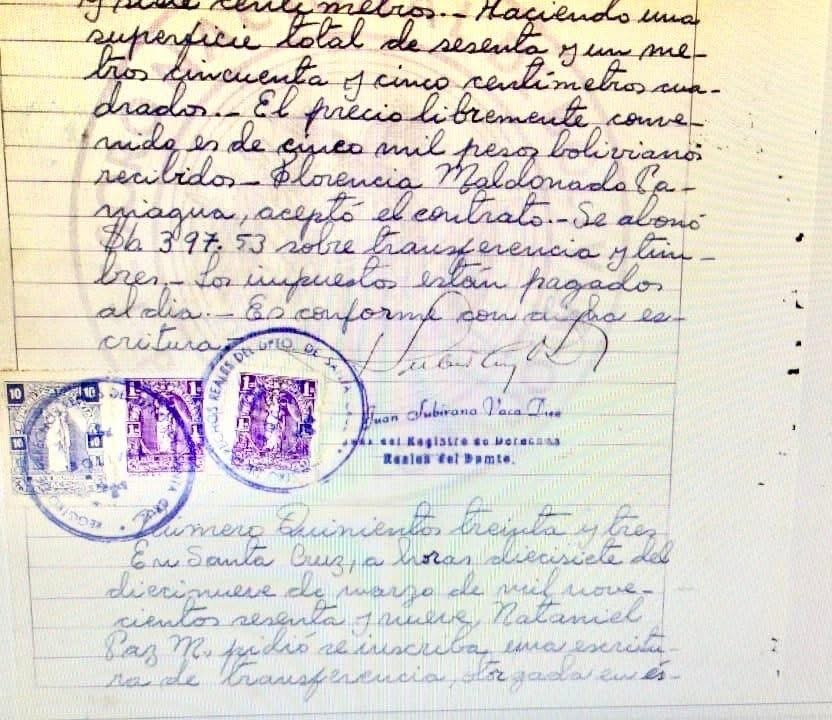 y siete centímetros.- Haciendo una
superficie total de sesenta y un me-
tros cincuenta y cinco centímetros cua-
drados.- El precio libremente conve-
nido es de cinco mil pesos bolivianos
recibidos- Florencia Maldonado Pa-
niagua, aceptó el contrato.- Se abonó
$b. 397.53 sobre transferencia y tim-
bres.- Los impuestos están pagados
al día.- Es conforme con dicha es-
critura-
10 10
1 1
1 1
DERECHOS REALES DEL DPTO. DE SANTA
Juan Subirana Vaca Diez
del Registro de Derechos
Reales del Dpmto.
Número Quinientos treinta y tres
En Santa Cruz, a horas diecisiete del
diecinueve de marzo de mil nove-
cientos sesenta y nueve, Nataniel
Paz M. pidió se inscriba una escritu-
ra de transferencia, otorgada en és-